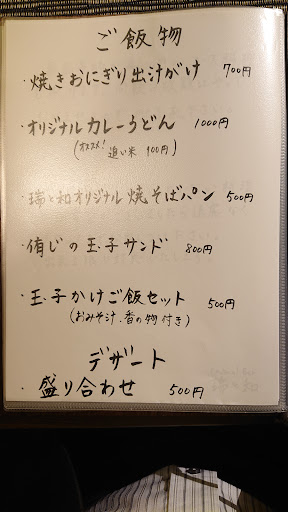 ご飯物
・焼きおにぎり出汁がけ 700円
・オリジナルカレーうどん 1000円
(オススメ! 追い米 100円)
・瑞と和オリジナル焼そばパン 500円
・侑じの玉子サンド 800円
・玉子かけご飯セット 500円
(おみそ汁.香の物付き)
デザート
・盛り合わせ 500円